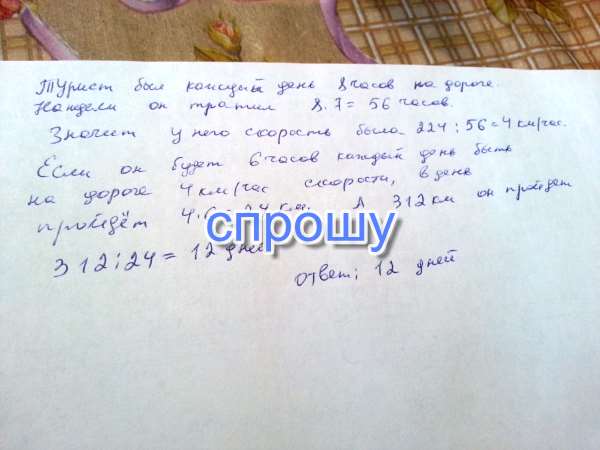 Турист был каждый день 8 часов на дороге.
На недели он тратил 8.7=56 часов.
Значит у него скорость была 224:56=4 км/час.
Если он будет 6 часов каждый день быть
на дороге 4 км/час скорости, в день
пройдёт 4.6=24 км. А 312 км он пройдет
спрошу
312:24= 12 дней
ответ: 12 дней